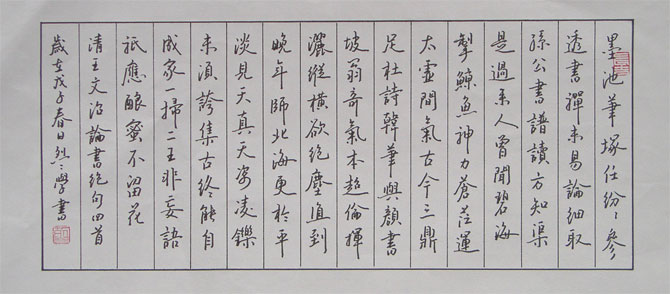 墨池筆塚任紛〻參
透書禪未易論細取
孫公書譜讀方知渠
是過來人曾聞碧海
掣鯨魚神力蒼茫運
太虛間氣古今三鼎
足杜詩韓筆與顏書
坡翁奇氣本超倫揮
灑縱橫欲絕塵直到
晚年師北海更於平
淡見天真天姿凌鑠
未須誇集古終能自
成家一掃二王非妄語
祗應釀蜜不留花
清王文治論書絕句四首
歲在戊子春日烈〻學書